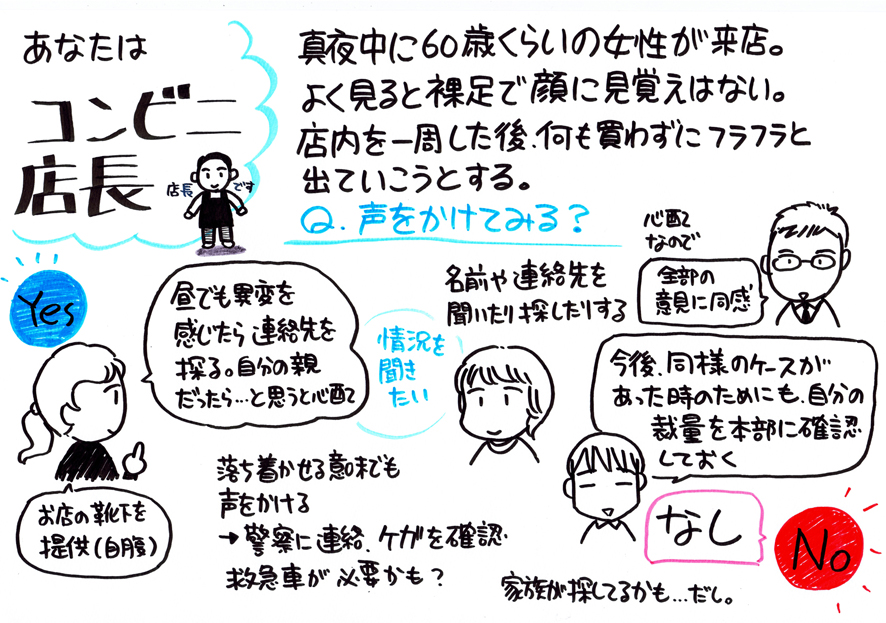 あなたは
コンビニ
店長
店長
です
真夜中に60歳くらいの女性が来店。
よく見ると裸足で顔に見覚えはない。
店内を一周した後、何も買わずにフラフラと
出ていこうとする。
Q.声をかけてみる?
Yes
昼でも異変を
感じたら連絡先を
探る。自分の親
だったら…と思うと心配で
お店の靴下を
提供(自腹)
情況を
聞き
たい
名前や連絡先を
聞いたり探したりする
心配
なので
全部の
意見に同感
落ち着かせる意味でも
声をかける
→警察に連絡、ケガを確認
救急車が必要かも?
今後、同様のケースが
あった時のためにも、自分の
裁量を本部に確認
しておく
なし
No
家族が探してるかも…だし。